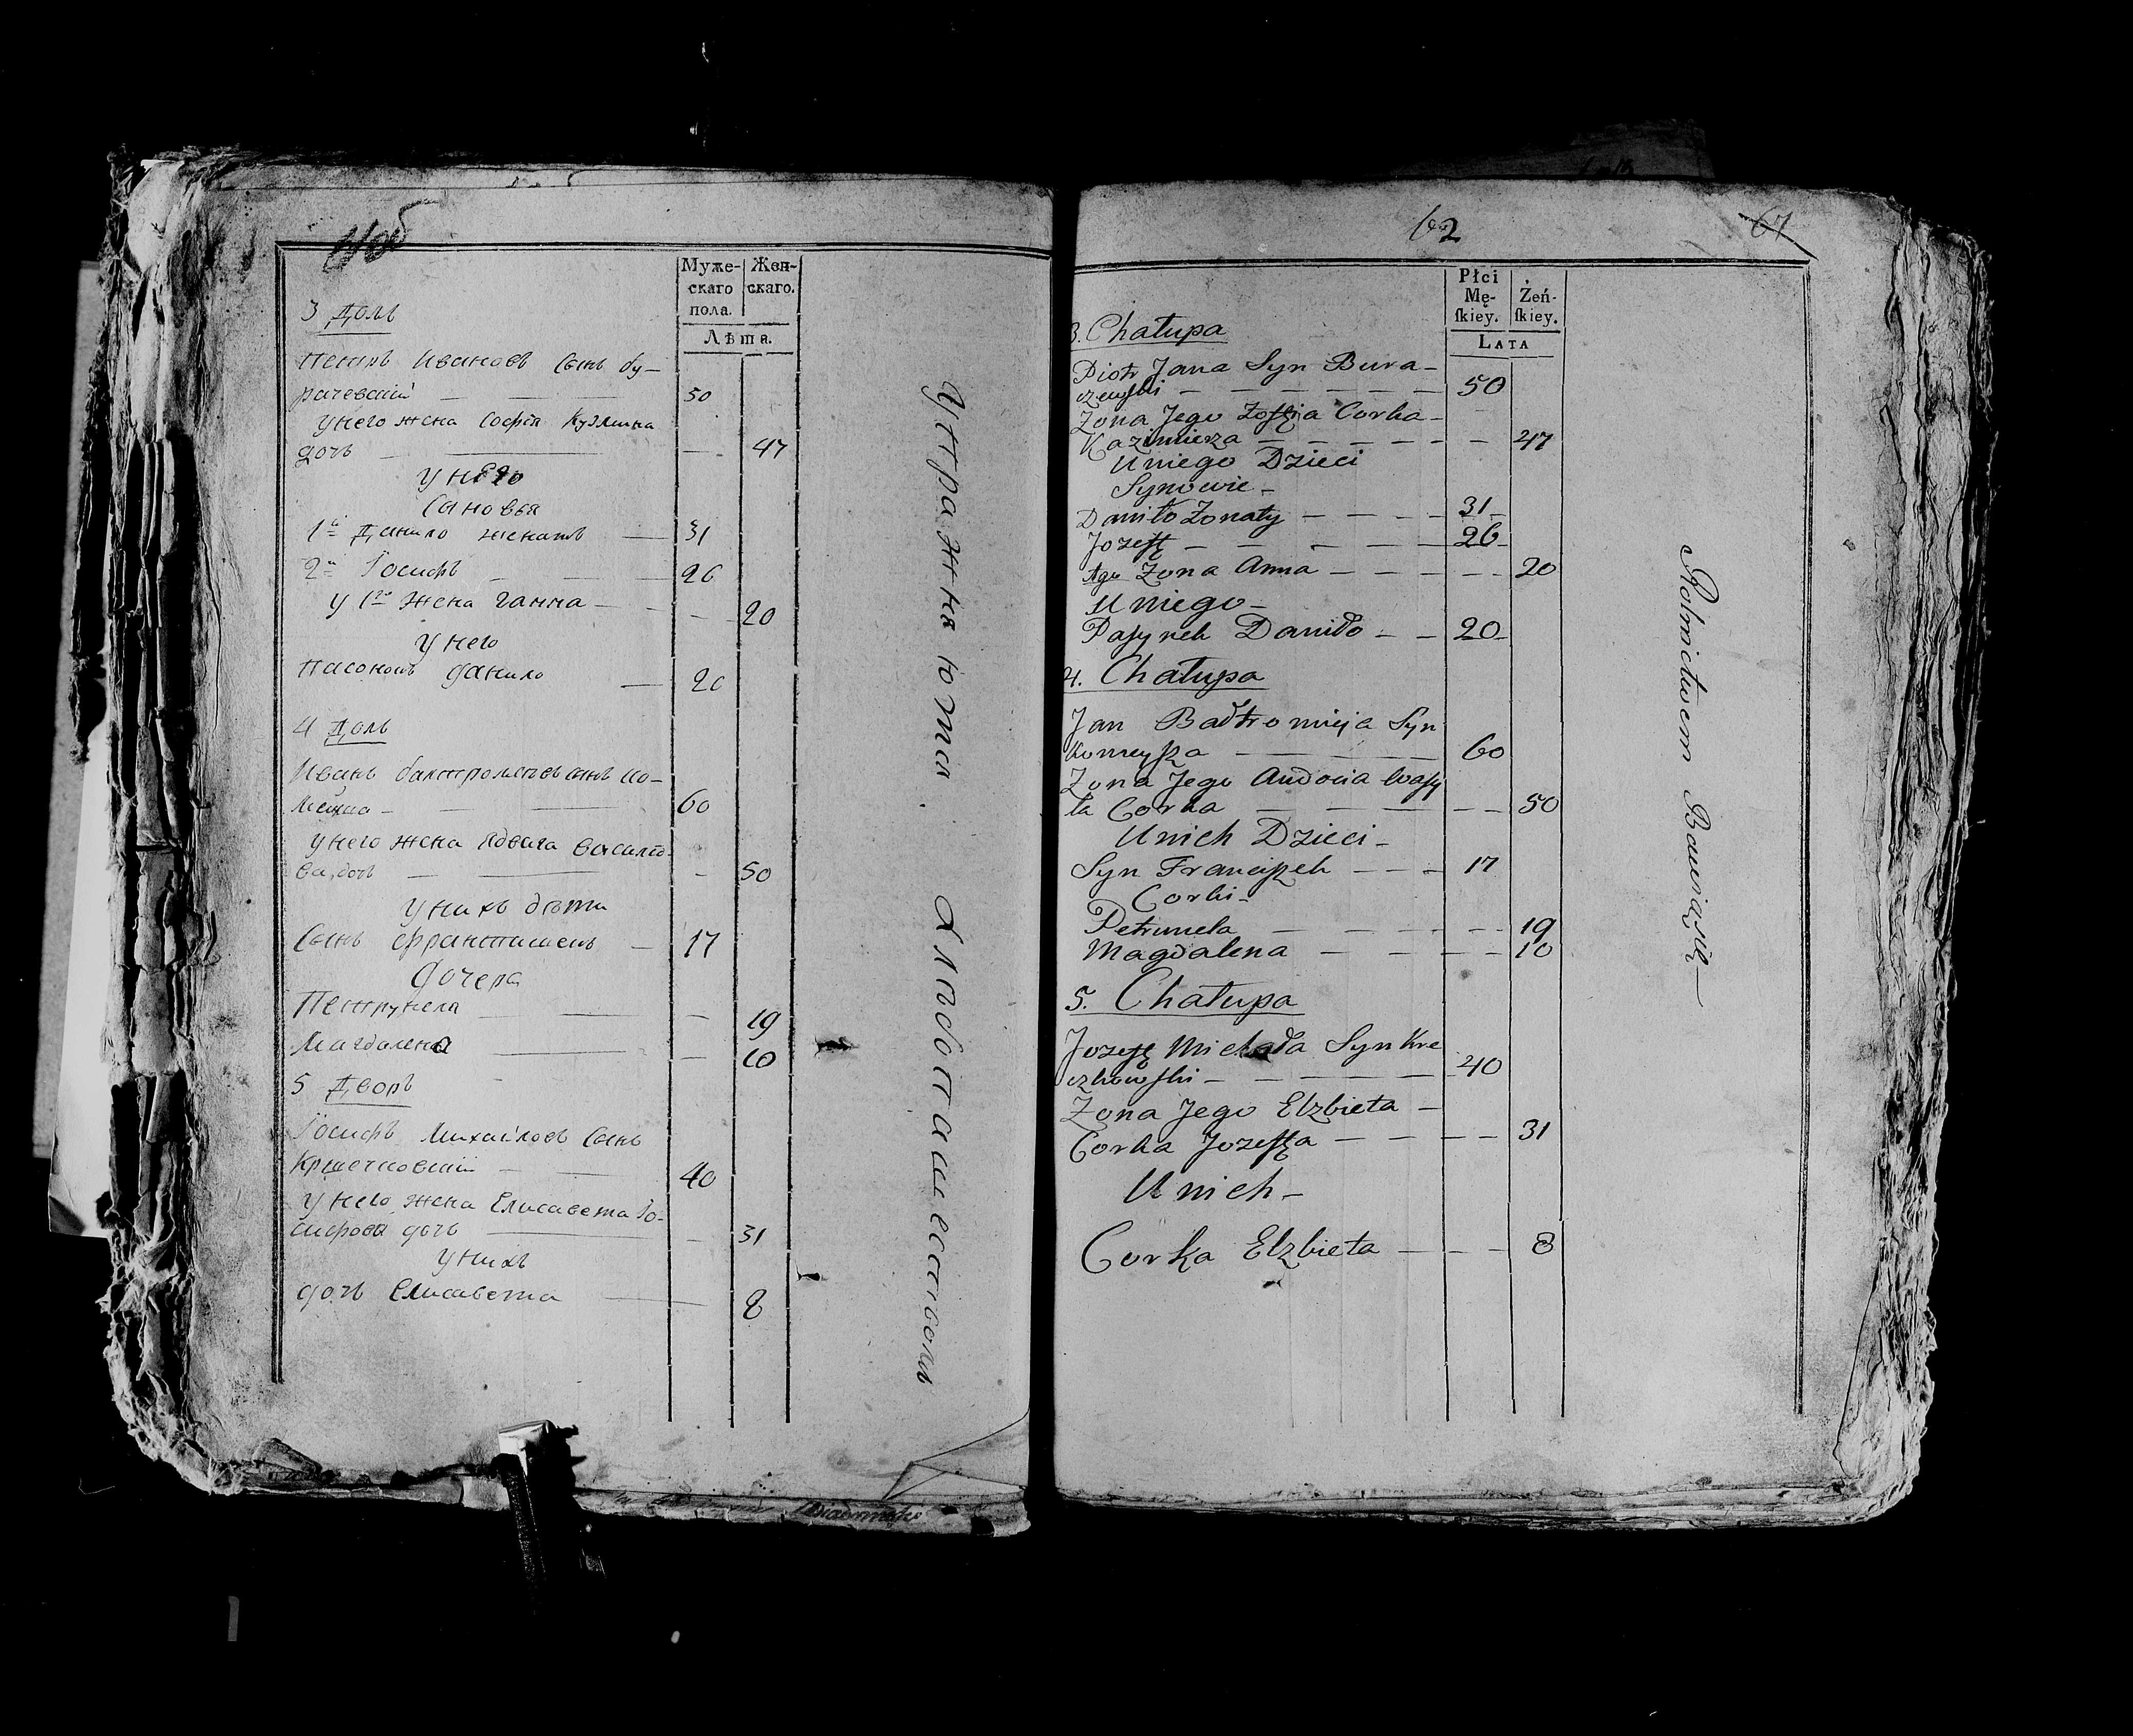 Муже-
скаго
пола.
Жен-
скаго.
Лѣта.
3 Домъ
Петръ Ивановъ сынъ бу-
рачевскій 50
у него жена Софія Кузмина
дочь 47
у него
Сыновья
1й Данило женатъ 31
2й Іосифъ 26
у 1го жена ганна 20
у него
пасонокъ данило 20
4 Домъ
Иванъ балтромѣевъ сынъ
60
у него жена Ядвига василіо-
ва дочь 50
у нихъ дѣти
Сынъ Франтишекъ 17
дочера
Петрунела 19
Магдалена 10
5 Дворъ
Іосифъ Михайловъ Сынъ
Кржечковскій 40
у него жена Елисавета Іо-
сифова дочь 31
у нихъ
дочь Елисавета 8
упражняются хлѣбопашествомъ
62
67
Płci
Mę-
ſkiey.
Żeń-
ſkiey.
LATA
3. Chałupa
Piotr Jana Syn Bura-
czewſki 50
Zona Jego Zofija Corka
Kazimierza 47
U niego Dzieci
Synowie
Daniło Zonaty 31
Jozeff 26
1go Zona Anna 20
U niego
Paſynek Daniło 20
4. Chałupa
Jan Bałtromieja Syn
60
Zona Jego Audocia Waſy
la Corka 50
U nich Dzieci
Syn Franciſzek 17
Corki
Petrunela 19
Magdalena 10
5. Chałupa
Jozeff Michała Syn Kre
czkowſki 40
Zona Jego Elzbieta
Corka Jozeffa 31
U nich
Corka Elzbieta 8
Rolnictwem Bawią się